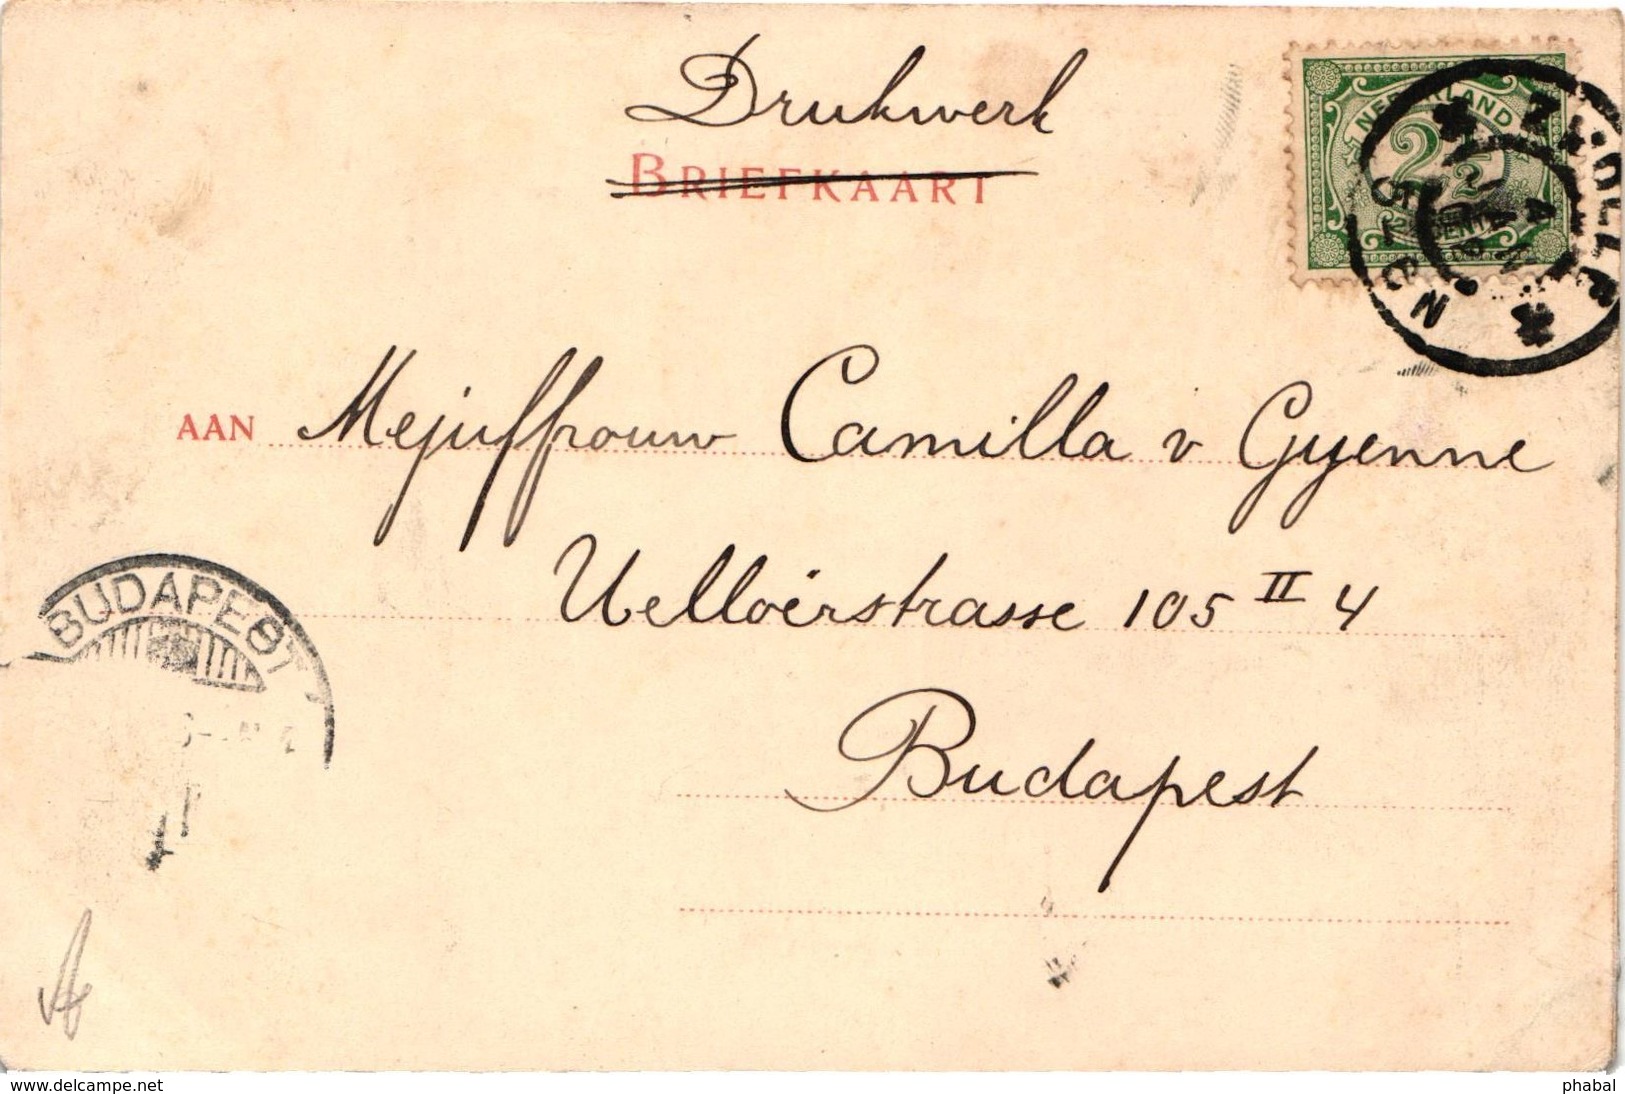 Drukwerk
BRIEFKAART
NEDERLAND
2½
CENT
ZWOLLE
5-6 N
AAN Mejuffrouw Camilla v Gyenne
Uelloërstrasse 105 II 4
BUDAPEST
Budapest
www.delcampe.net
phabal